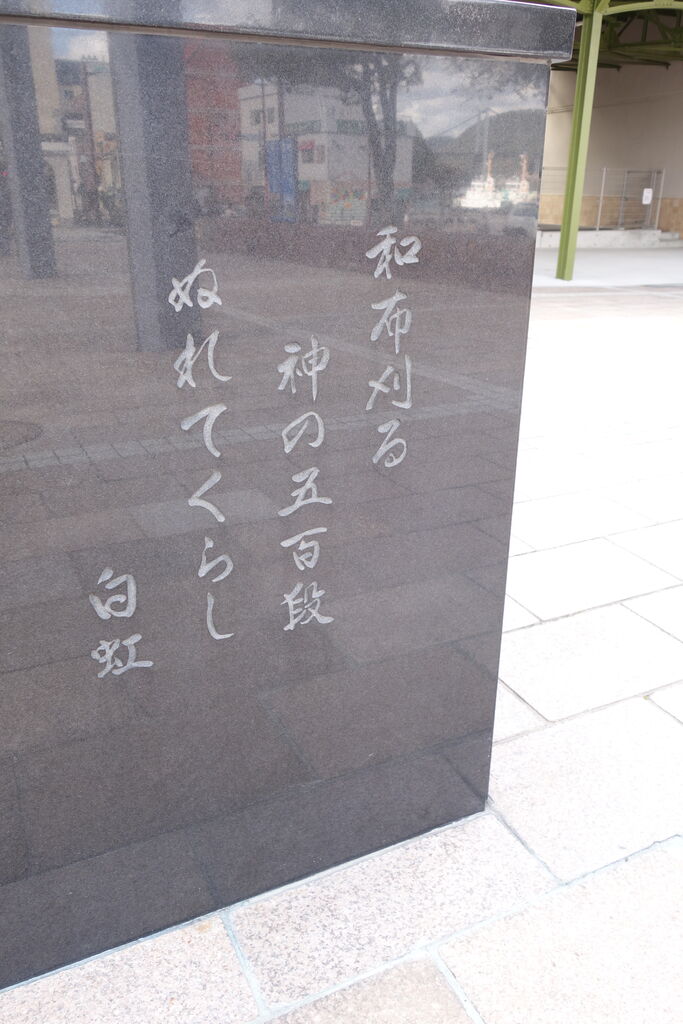 和布刈る
神の五百段
ぬれてくらし
白虹